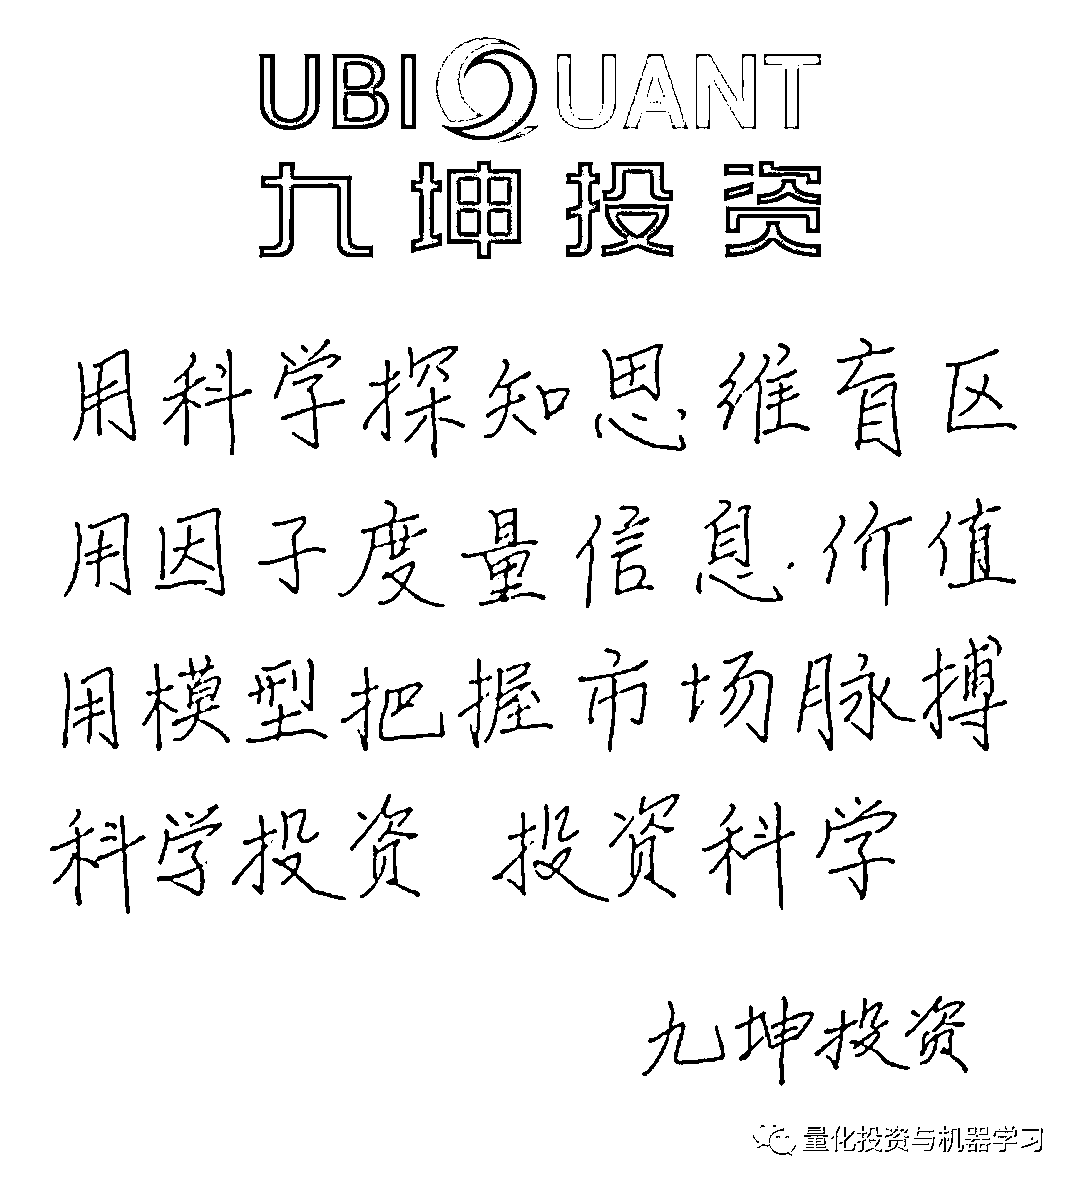 UBIQUANT
九坤投资
用科学探知思维盲区
用因子度量信息价值
用模型把握市场脉搏
科学投资 投资科学
九坤投资
量化投资与机器学习